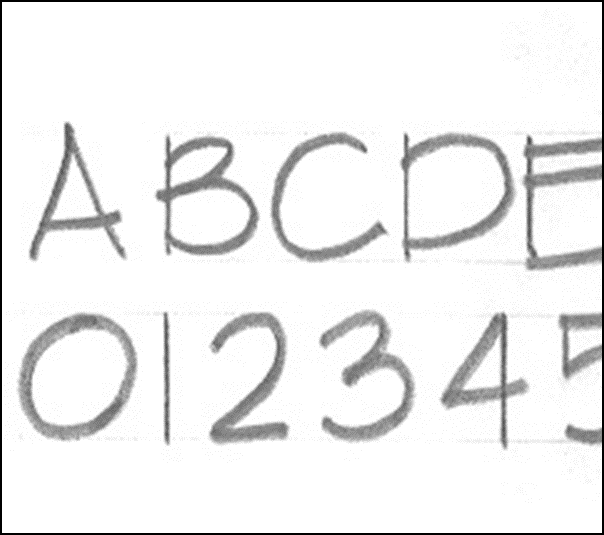 ABCDE
012345